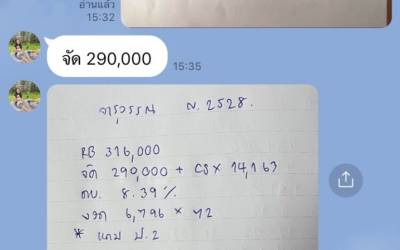 อ่านแล้ว
15:32
จัด 290,000
15:35
จารุวรรณ ม.2528.
RB 316,000
จัด 290,000 + CS x 14,163
ดบ. 8.39%
งวด 6,796 x 72
* แถม ป.2